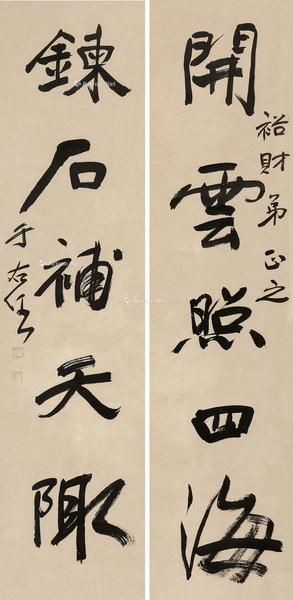 裕財弟正之
開雲照四海
鍊石補天陬
于右任